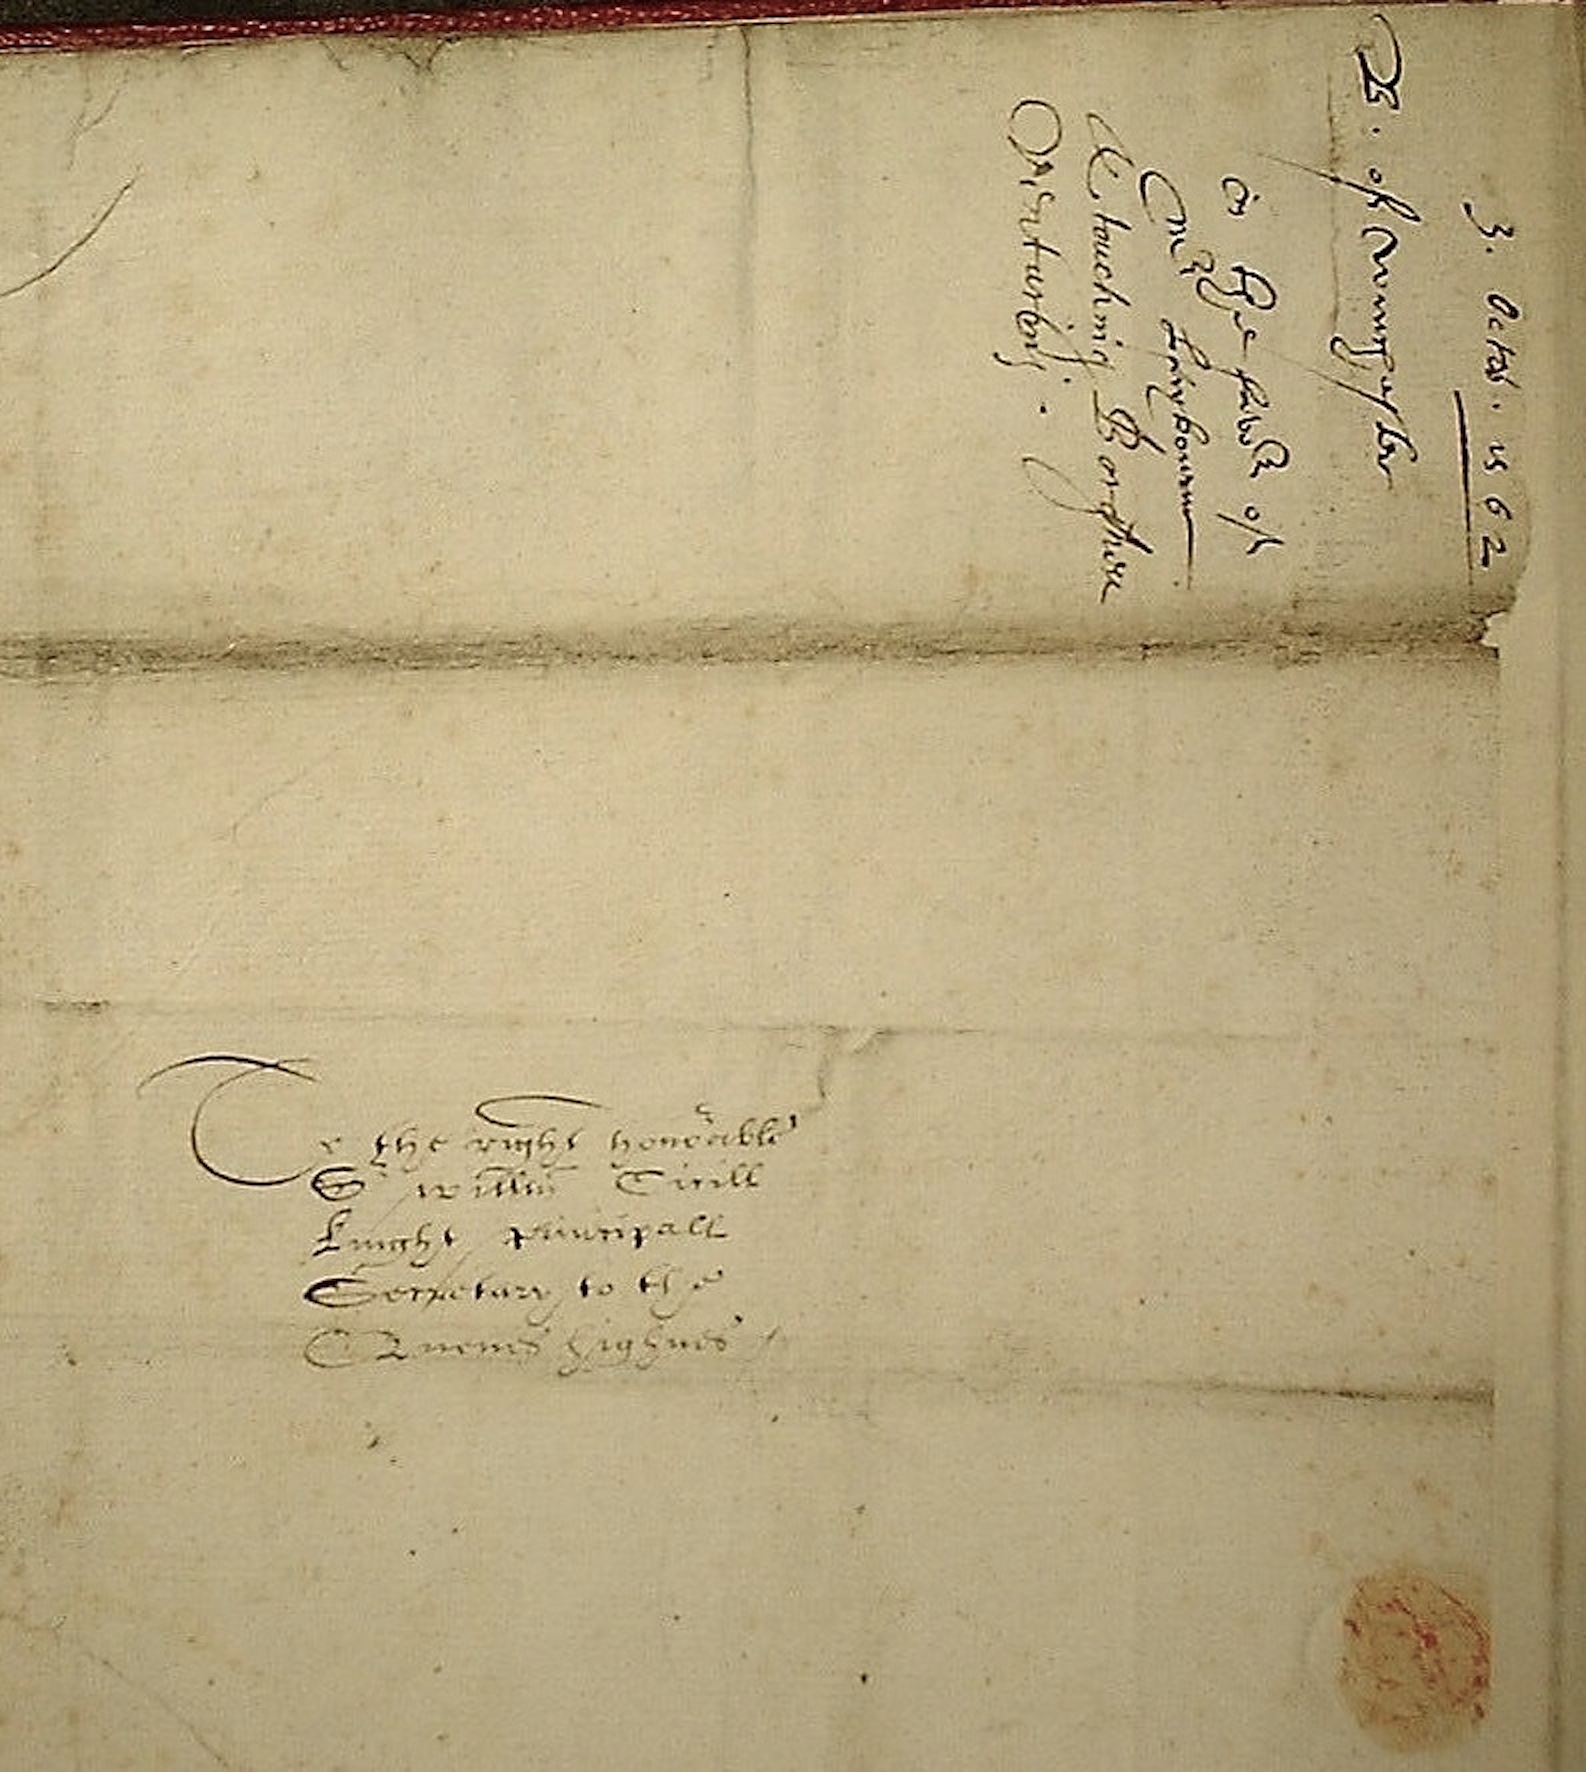 3. Octob. 1562
B. of Winchester
in the favor of
Mr Leighbourne
touching Bordhure
Disturbing.
To the right honorable
Sr Willm Cicill
knight principall
Secretary to the
Quenes highnes